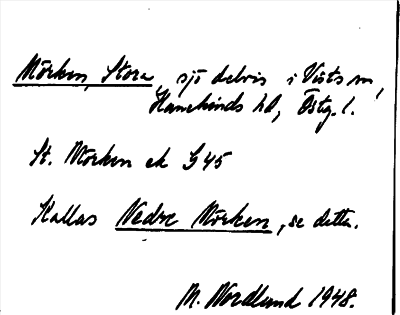 Mörken, Stora, sjö delvis i Vists sn,
Hanekinds hd, Östg. l.
St. Mörken ek G45
Kallas Nedre Mörken, se detta.
M. Nordlund 1948.